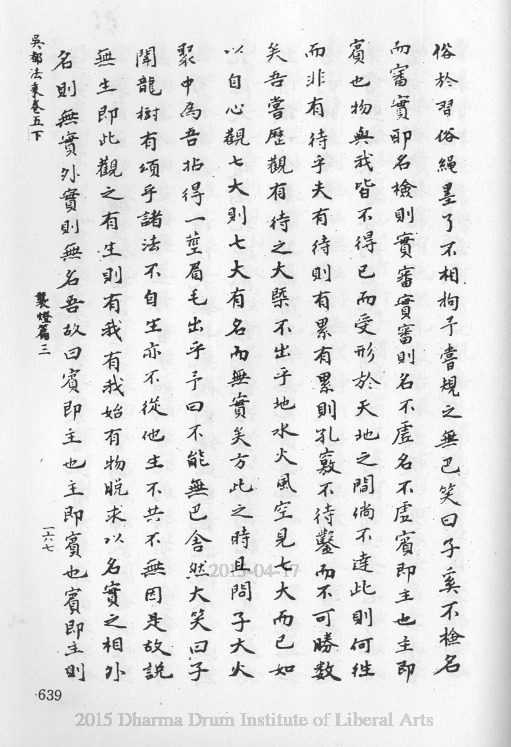 俗於習俗繩墨了不相拘予嘗規之無巴笑曰子奚不檢名
而審實耶名檢則實審實審則名不虛名不虛賓即主也主即
賓也物與我皆不得已而受形於天地之間倘不達此則何往
而非有待乎夫有待則有累有累則孔竅不待鑿而不可勝數
矣吾嘗歷觀有待之大槩不出乎地水火風空見七大而已如
以自心觀七大則七大有名而無實矣方此之時且問子大火
聚中為吾拈得一莖眉毛出乎予曰不能無巴舍然大笑曰子
聞龍樹有頌乎諸法不自生亦不從他生不共不無因是故說
無生即此觀之有生則有我有我始有物脫求以名實之相外
名則無實外實則無名吾故曰賓即主也主即賓也賓即主則
吳都法乘卷五下
襲燈篇三
一二六七
639
2015-04-17
2015 Dharma Drum Institute of Liberal Arts